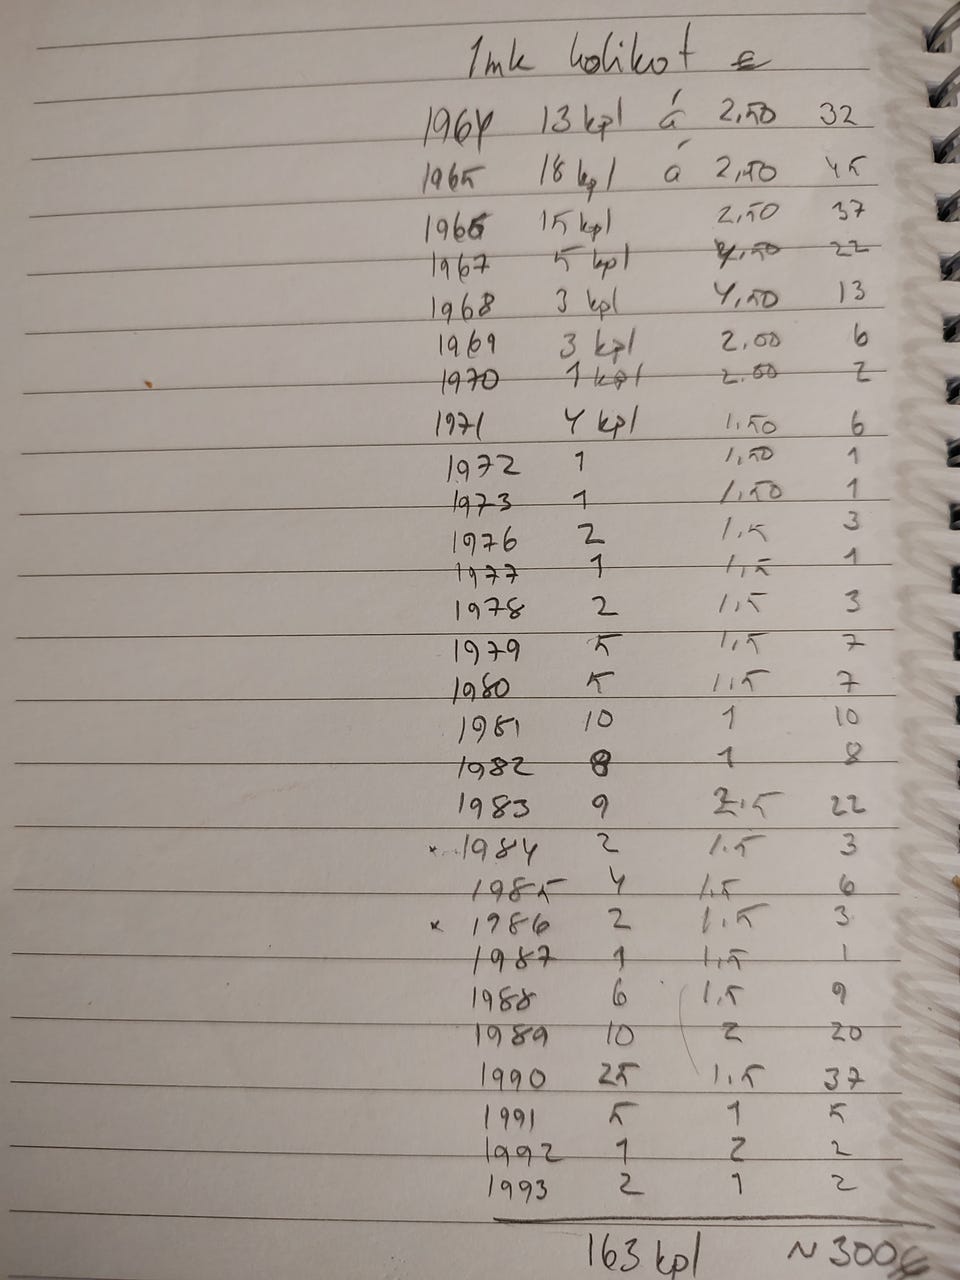 1mk kolikot €
1964 13 kpl á 2,50 32
1965 18 kpl á 2,50 45
1966 15 kpl 2,50 37
1967 5 kpl 4,50 22
1968 3 kpl 4,50 13
1969 3 kpl 2,00 6
1970 1 kpl 2.00 2
1971 4 kpl 1,50 6
1972 1 1,50 1
1973 1 1,50 1
1976 2 1,5 3
1977 1 1,5 1
1978 2 1,5 3
1979 5 1,5 7
1980 5 1,5 7
1981 10 1 10
1982 8 1 8
1983 9 2.5 22
x 1984 2 1.5 3
1985 4 1.5 6
x 1986 2 1.5 3
1987 1 1,5 1
1988 6 1.5 9
1989 10 2 20
1990 25 1.5 37
1991 5 1 5
1992 1 2 2
1993 2 1 2
163 kpl ~300€